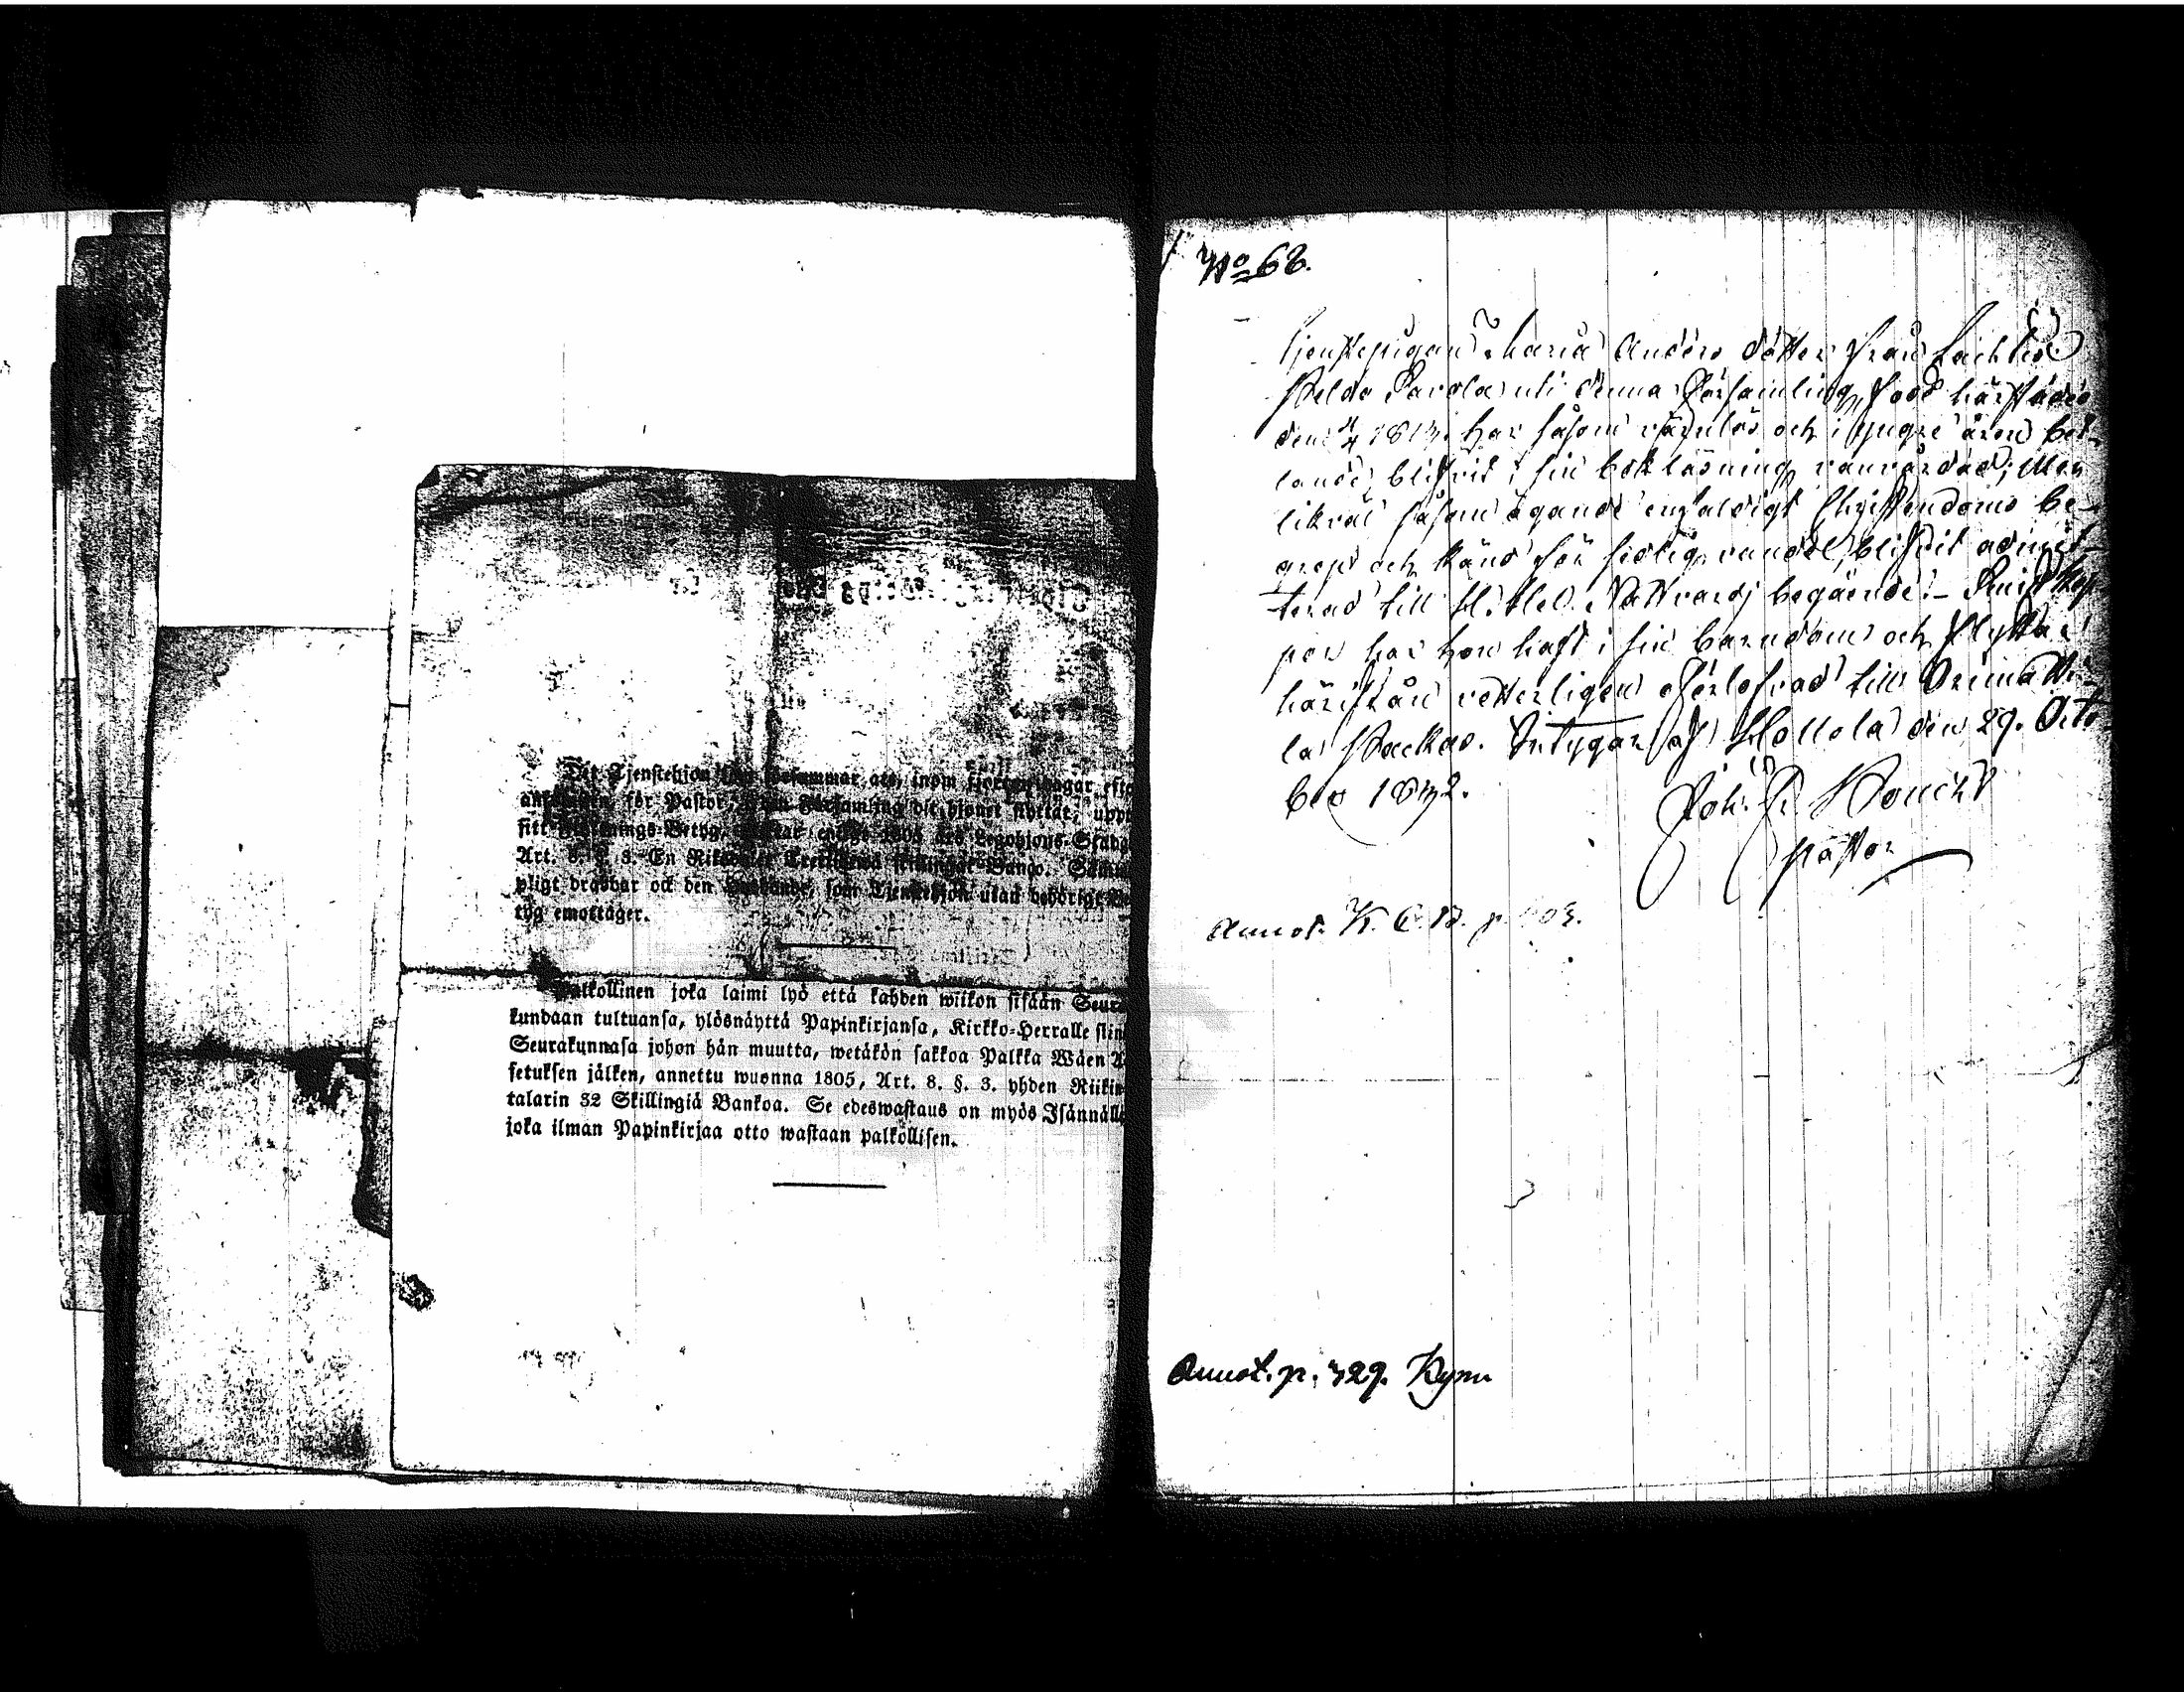 Det Tjenstehjon som försummar att, inom fjorton dagar efter
ankomsten för Pastor, i den Församling dit hjonet flyttat, uppt
sitt flyttnings-Betyg, enligt 1805 års Legohjons-Stadga
Art. 8. §. 3. En Riksdaler Trettiotwå skillingar Banco. Samma
pligt drabbar ock den Husbonde, som Tjenstehjon utan behörigt Be
tyg emottager.
Palkollinen joka laimi lyö että kahden wiikon sisään Seura
kundaan tultuansa, ylösnäyttä Papinkirjansa, Kirkko-Herralle siin
Seurakunnasa johon hän muutta, wetäkön sakkoa Palkka Wäen A
setuksen jälken, annettu wuonna 1805, Art. 8. §. 3. yhden Riikin
talarin 32 Skillingiä Bankoa. Se edeswastaus on myös Isännällä
joka ilman Papinkirjaa otto wastaan palkollisen.
No 68.
Tjenstepigan Maria Anders dotter från Lachtis
Pelda Pavola uti denna Församling, född härstädes
den har såsom värnlös och i yngre åren bet-
lande, blifvit i sin bokläsning vanvårdad; Men
likväl såsom ägande enfaldigt Christendoms be-
grep och känd för sedlig vandel, blifvit admit-
terad till H. Hel. Nattvardj begående. - Smittkop
por har hon haft i sin barndom och flyttar
härifrån vetterligen oförlofvad till Orimatti-
la Sockn. Intygar af Hollola den 29. Octo-
ber 1832.
Joh. Fr.
pastor
Annot. K. C. B. p.
Annot. p. 329. Kymi